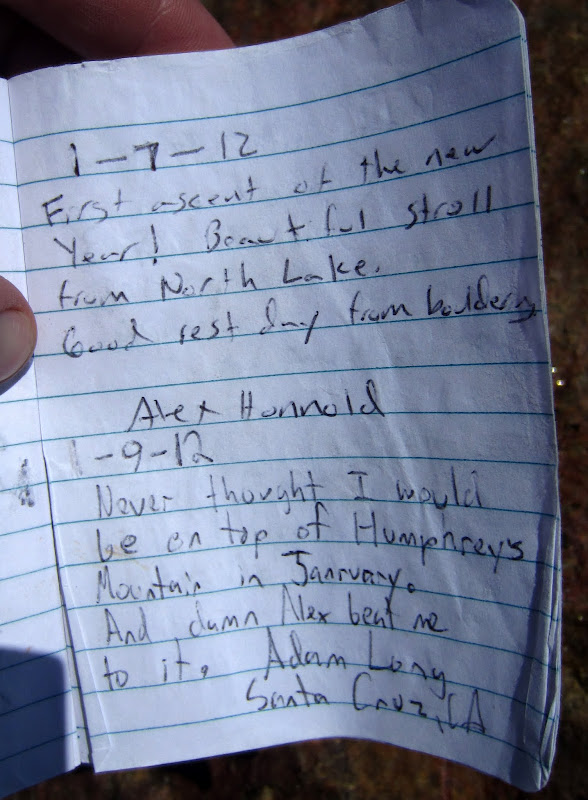 1-7-12
First ascent of the new
Year! Beautiful stroll
from North Lake.
Good rest day from bouldering
Alex Honnold
1-9-12
Never thought I would
be on top of Humphreys
Mountain in Janruary.
And damn Alex beat me
to it. Adam Long
Santa Cruz, CA